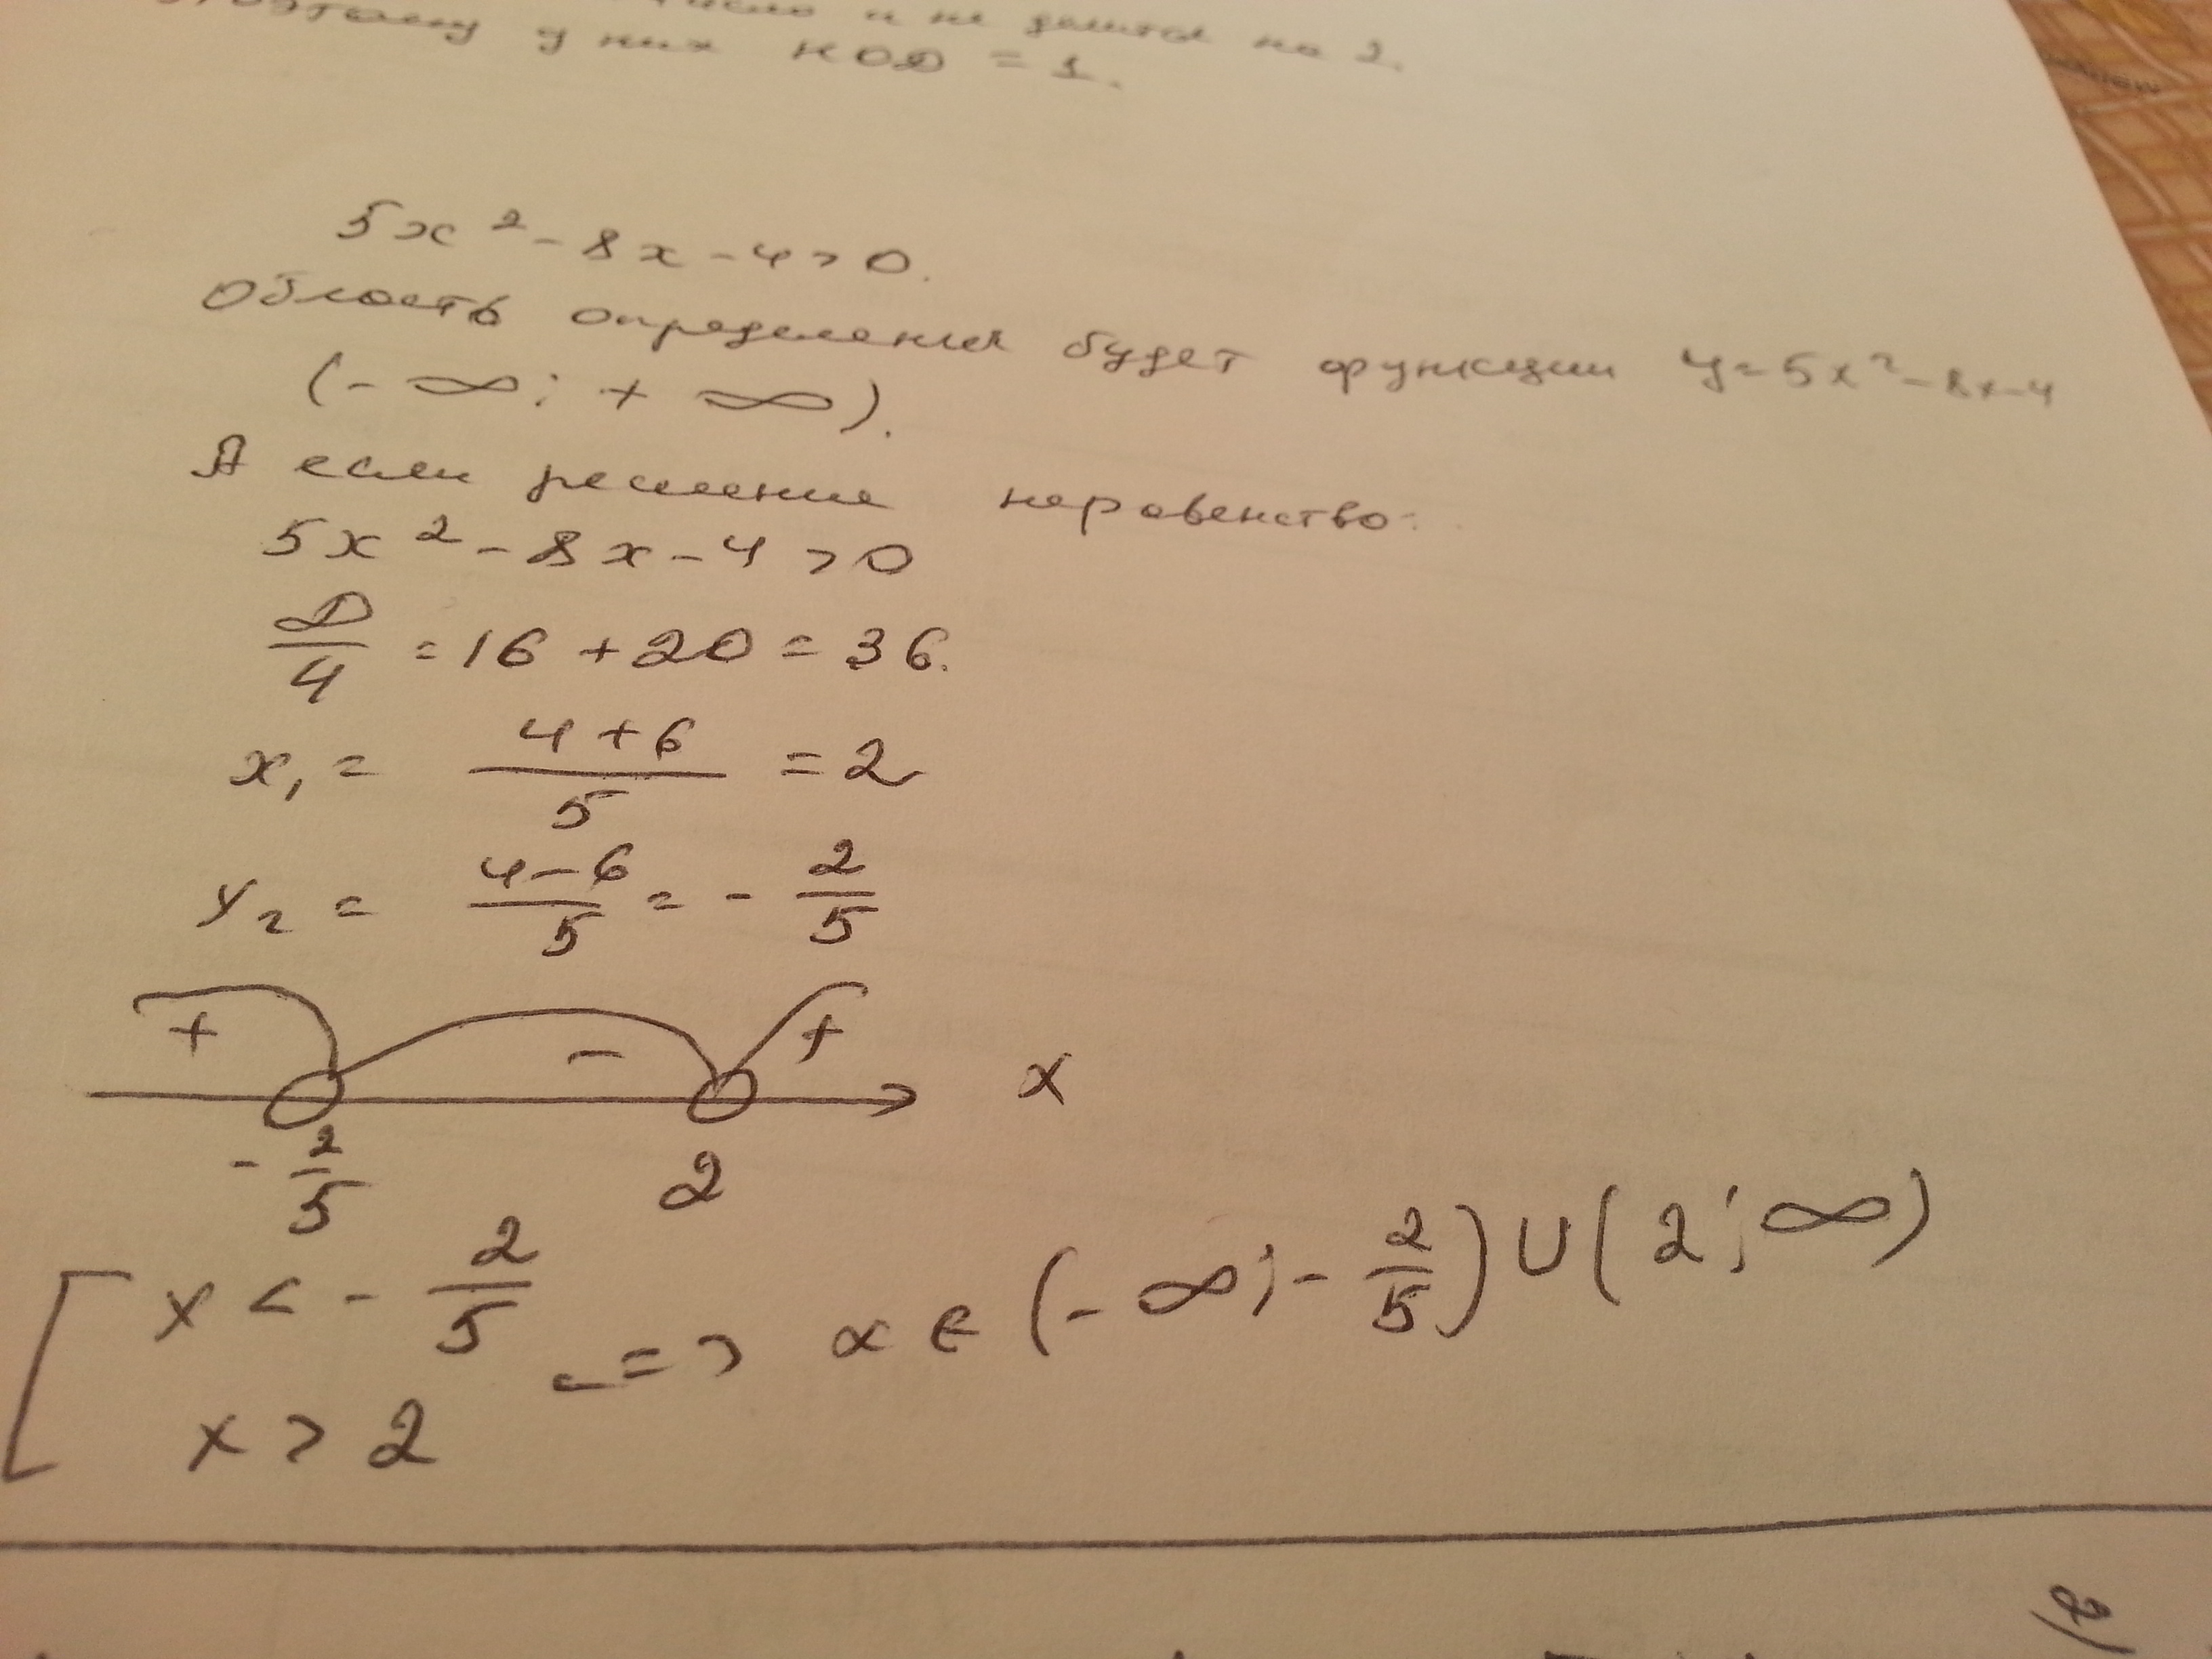 и не делится на 2.
Поэтому у них НОД = 1.
5x² - 8x - 4 > 0.
Область определения будет функции y = 5x² - 8x - 4
(-∞; +∞).
А если решение неравенство:
5x² - 8x - 4 > 0
D/4 = 16 + 20 = 36.
x₁ = (4 + 6)/5 = 2
x₂ = (4 - 6)/5 = - 2/5
+ - + x
- 2/5 2
[ x < - 2/5
x > 2 <=> x ∈ (-∞; - 2/5) ∪ (2; ∞)